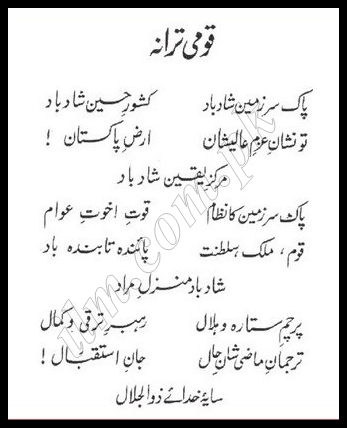 قومی ترانہ
پاک سرزمین شاد باد کشورِ حسین شاد باد
تو نشانِ عزمِ عالیشان ارضِ پاکستان !
مرکزِ یقین شاد باد
پاک سرزمین کا نظام قوتِ اخوتِ عوام
قوم ، ملک ، سلطنت پائندہ تابندہ باد
شاد باد منزلِ مراد
پرچمِ ستارہ و ہلال رہبرِ ترقی و کمال
ترجمانِ ماضی شانِ حال جانِ استقبال !
سایۂ خدائے ذوالجلال
ilm.com.pk